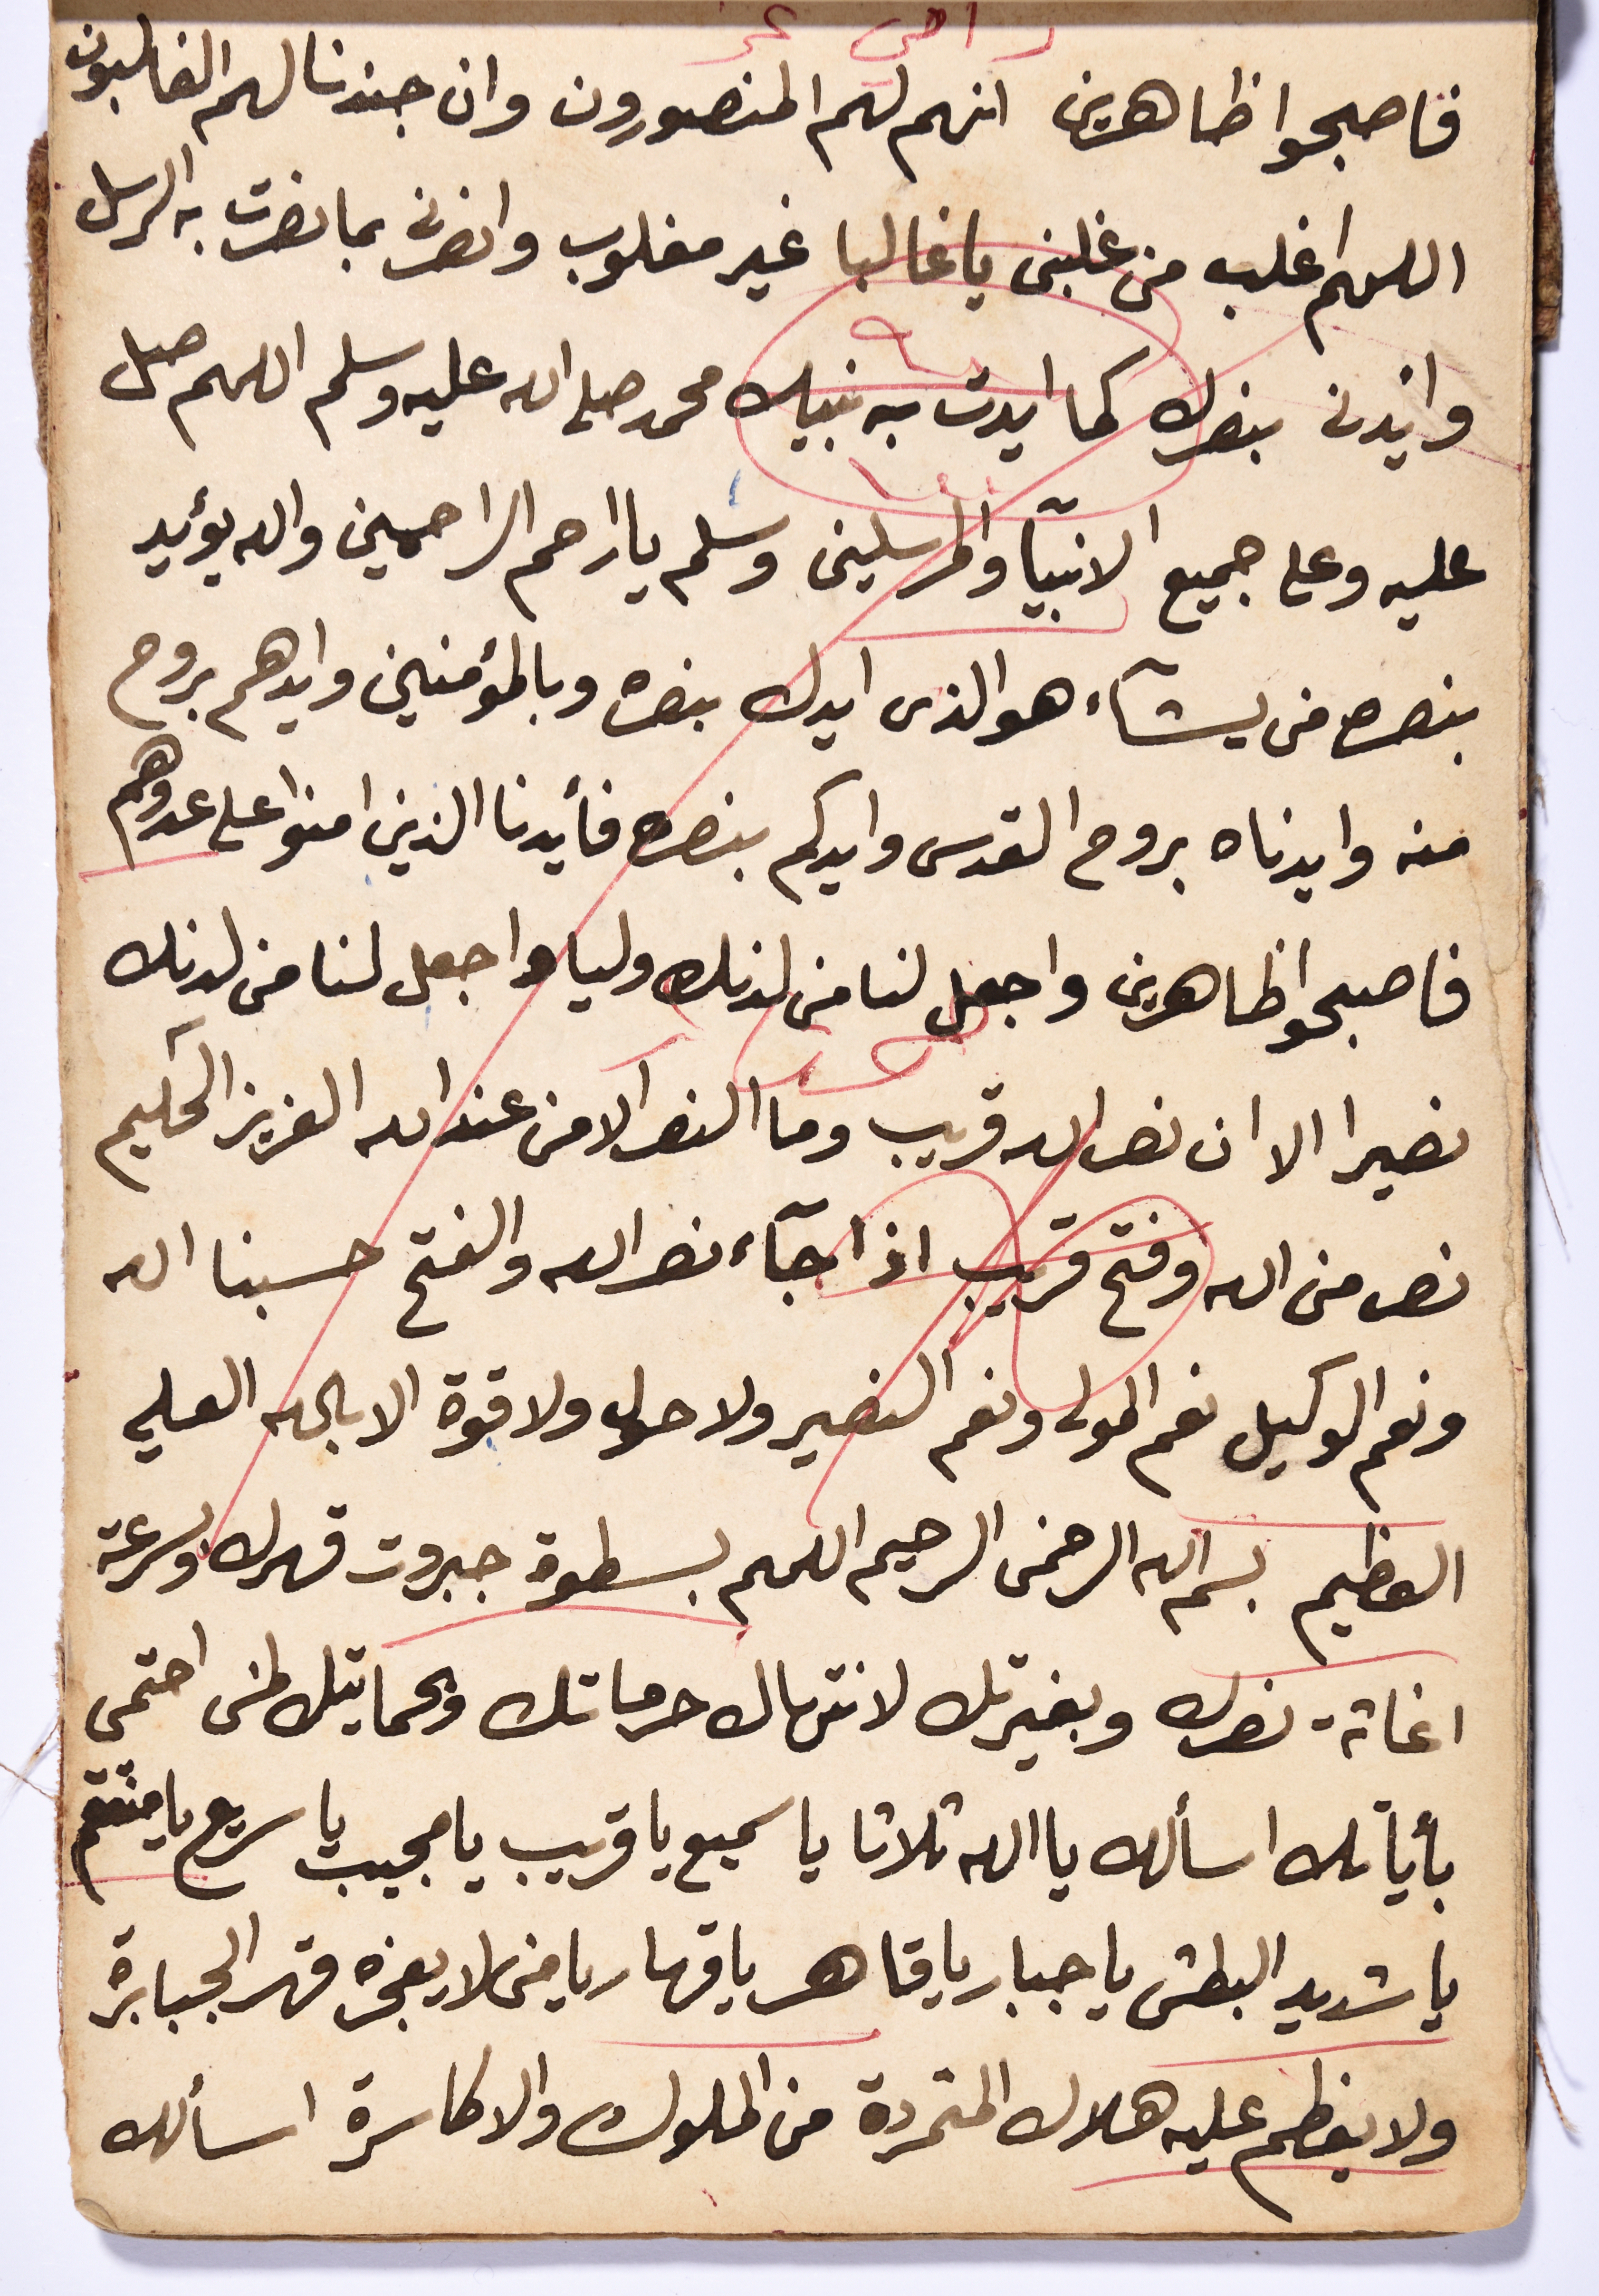 فاصبحوا ظاهرين انهم لهم المنصورون وان جندنا لهم الغالبون
اللهم اغلب من غلبنى يا غالبا غير مغلوب وانصرنى بما نصرت به الرسل
وايدنى بنصرك كما ايدت به نبيك محمد صلى الله عليه وسلم اللهم صل
عليه وعلى جميع الانبيآ والمرسلين وسلم يا ارحم الراحمين والله يؤيد
بنصره من يشآء هو الذى ايدك بنصره وبالمؤمنين وايدهم بروح
منه وايدناه بروح القدس وايدكم بنصره فأيدنا الذين امنوا على عدوهم
فاصبحوا ظاهرين واجعل لنا من لدنك وليا واجعل لنا من لدنك
نصيرا الا ان نصر الله قريب وما النصر الا من عند الله العزيز الحكيم
نصر من الله وفتح قريب اذا جآء نصر الله والفتح حسبنا الله
ونعم الوكيل نعم المولى ونعم النصير ولا حول ولا قوة الا بالله العلي
العظيم بسم الله الرحمن الرحيم اللهم بسطوة جبروت قهرك وبسرعة
اغاثة نصرك وبغيرتك لانتهاك حرماتك وبحمايتك لمن احتمى
بأياتك اسألك يا الله ثلاثا يا سميع يا قريب يا مجيب يا سريع يا منتقم
يا شديد البطش يا جبار يا قاهر يا قهار يا من لا يعجزه قهر الجبابرة
ولا يعظم عليه هلاك المتمردة من الملوك والاكاسرة اسألك